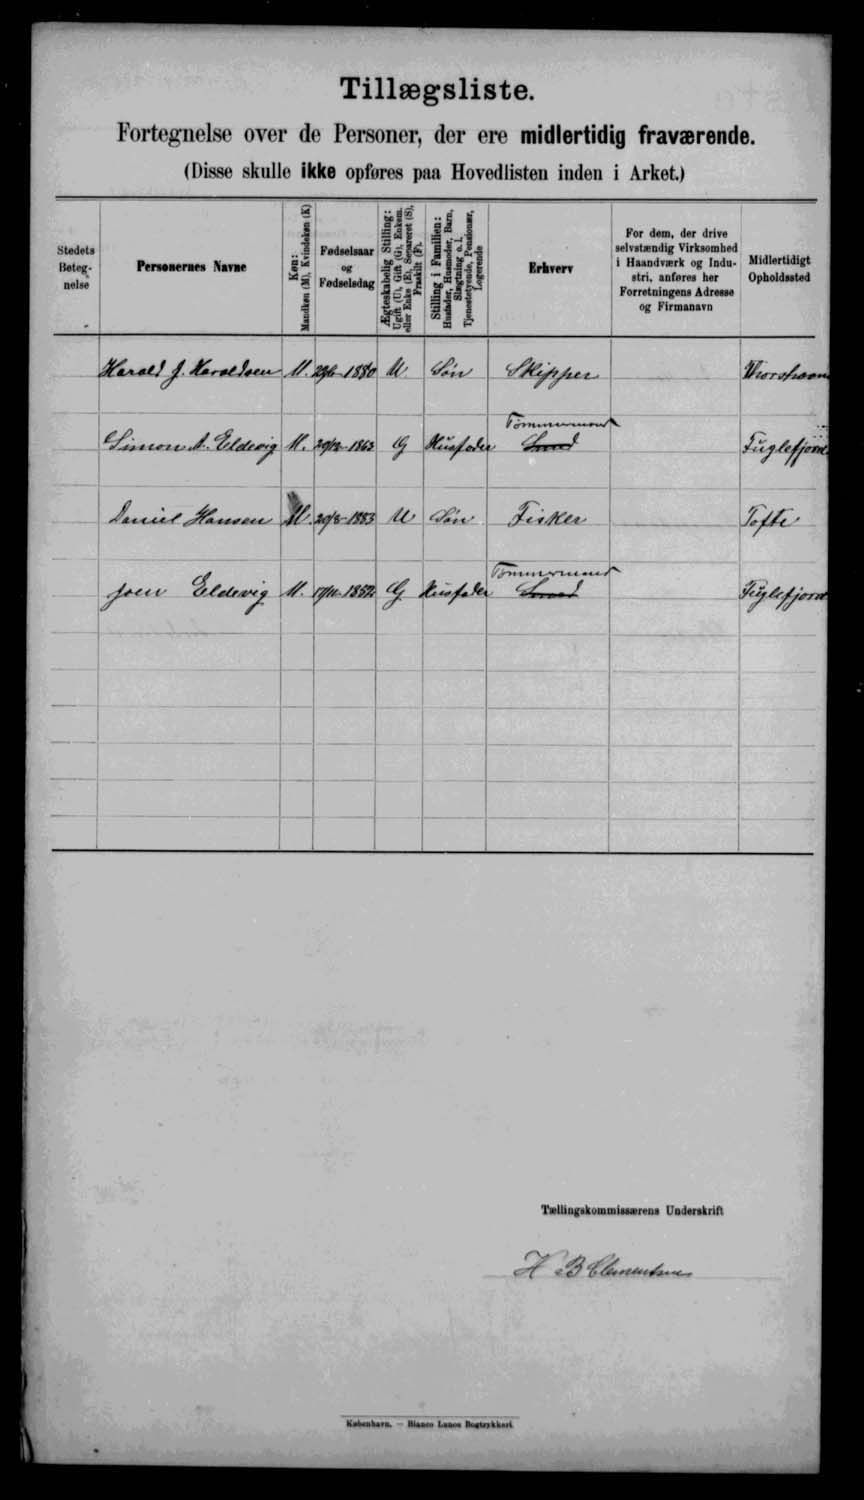 Tillægsliste.
Fortegnelse over de Personer, der ere midlertidig fraværende.
(Disse skulle ikke opføres paa Hovedlisten inden i Arket.)
Stedets Betegnelse
Personernes Navne
Køn: Mandkøn (M), Kvindekøn (K)
Fødselsaar og Fødselsdag
Ægteskabelig Stilling: Ugift (U), Gift (G), Enkem. eller Enke (E), Separeret (S), Fraskilt (F).
Stilling i Familien: Husfader, Husmoder, Barn, Slægtning o. l. Tjenestetyende, Pensionær, Logerende
Erhverv
For dem, der drive selvstændig Virksomhed i Haandværk og Industri, anføres her Forretningens Adresse og Firmanavn
Midlertidigt Opholdssted
Harald J. Haraldsen M. 1880 U Søn Skipper Thorshavn
Tømmermand
Simon A. Eldevig M. 1863 G Husfader Fuglefjord
Daniel Hansen M. 20/8-1883 U Søn Fisker Tofte
Tømmermand
Joen Eldevig M. G Husfader Fuglefjord
Tællingskommissærens Underskrift
H B Clementsen
København. — Bianco Lunos Bogtrykkeri